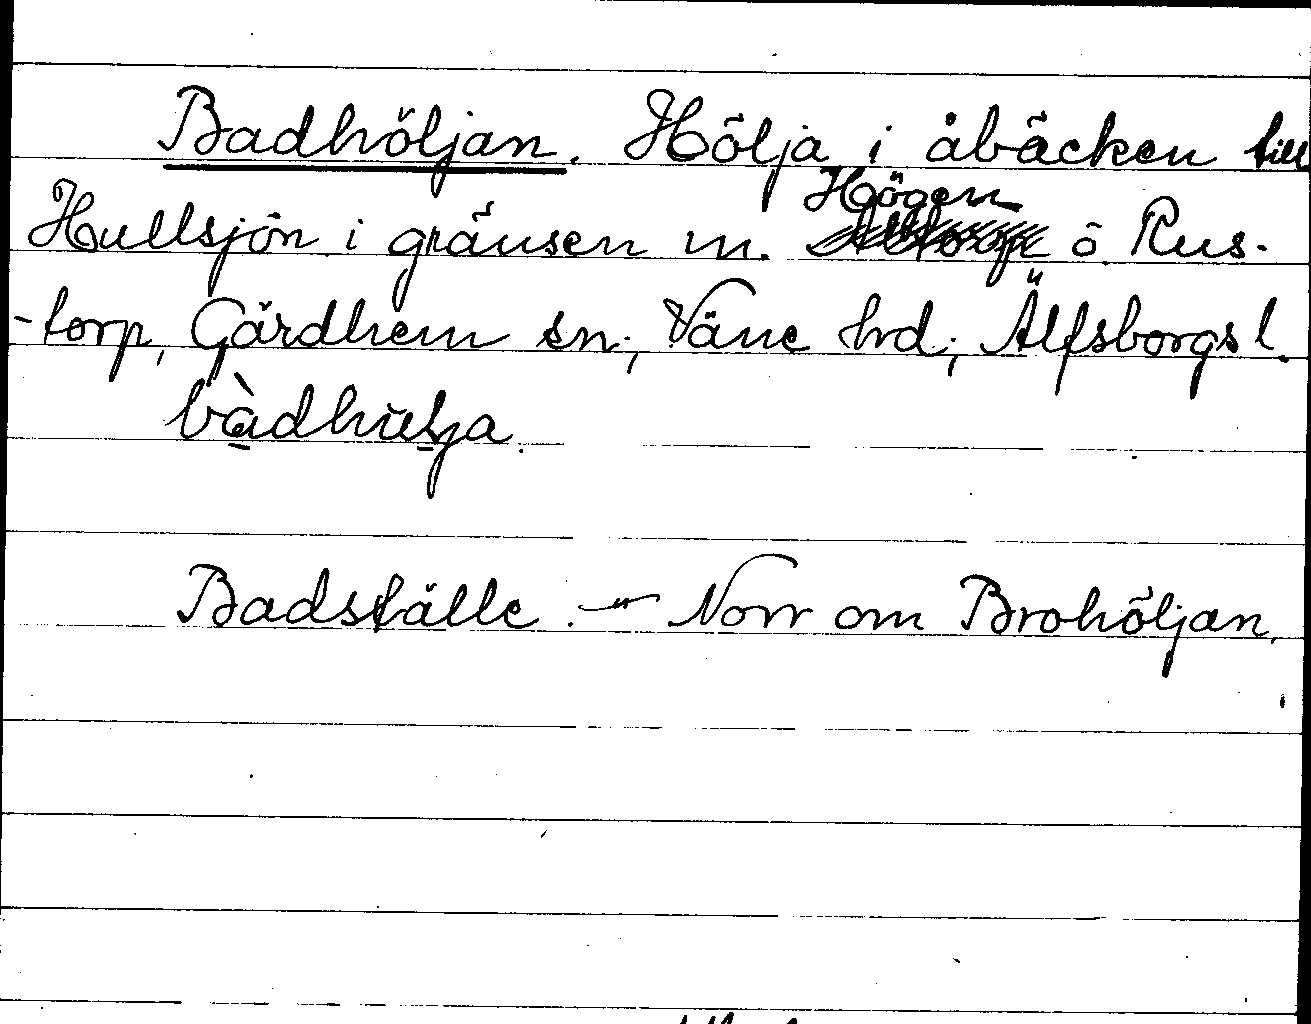 Badhöljan. Hölja i åbäcken till
Hullsjön i gränsen m. Högen ö. Rus-
-torp, Gärdhem sn; Väne hrd; Älfsborgs l.
bàdhulja.
Badställe. — " — Norr om Brohöljan.